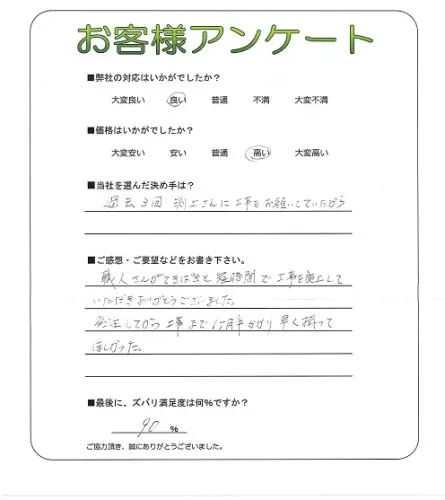 お客様アンケート
■弊社の対応はいかがでしたか？
大変良い 良い 普通 不満 大変不満
■価格はいかがでしたか？
大変安い 安い 普通 高い 大変高い
■当社を選んだ決め手は？
過去3回 渕上さんに工事をお願いしていたから
■ご感想・ご要望などをお書き下さい。
職人さんがてきぱきと短時間で工事を施工して
いただきありがとうございました。
発注してから工事まで1ヶ月半かかり早く掛って
ほしかった。
■最後に、ズバリ満足度は何%ですか？
90 %
ご協力頂き、誠にありがとうございました。